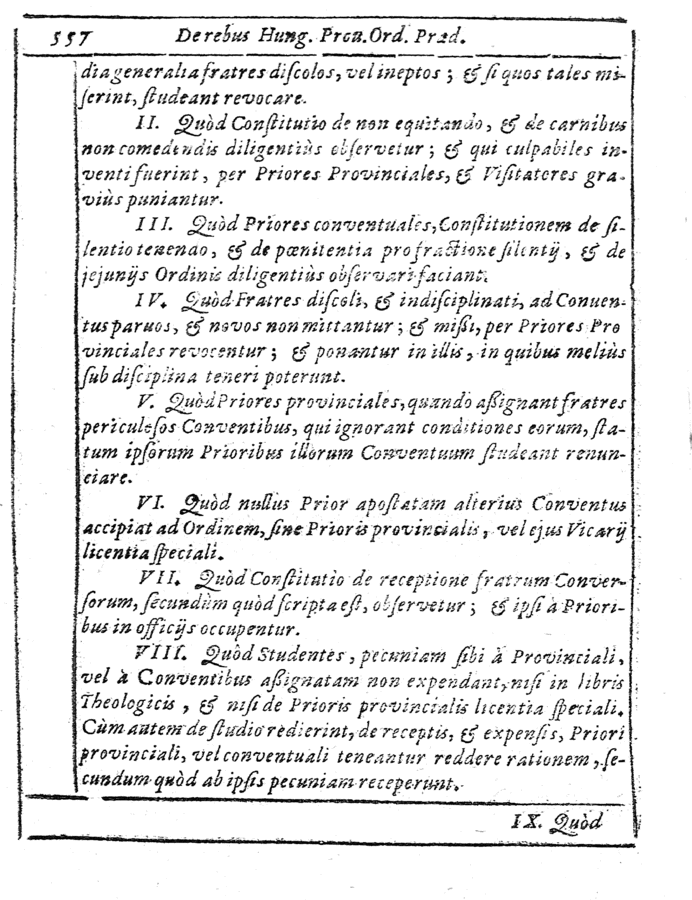 557 De rebus Hung. Prou. Ord. Præd.
dia generalia fratres diſcolos, vel ineptos ; & ſi quos tales mi-
ſerint, ſtudeant revocare.
II. Quòd Conſtitutio de non equitando, & de carnibus
non comedendis diligentiùs obſervetur ; & qui culpabiles in-
venti fuerint, per Priores Provinciales, & Viſitatores gra-
viùs puniantur.
III. Quòd Priores conventuales, Conſtitutionem de ſi-
lentio tenendo, & de pœnitentia pro fractione ſilentij, & de
jejunijs Ordinis diligentiùs obſervari faciant.
IV. Quòd Fratres diſcoli, & indiſciplinati, ad Conuen-
tus paruos, & novos non mittantur ; & miſſi, per Priores Pro
vinciales revocentur ; & ponantur in illis, in quibus meliùs
ſub diſciplina teneri poterunt.
V. Quòd Priores provinciales, quando aſſignant fratres
periculoſos Conventibus, qui ignorant conditiones eorum, ſta-
tum ipſorum Prioribus illorum Conventuum ſtudeant renun-
ciare.
VI. Quòd nullus Prior apoſtatam alterius Conventus
accipiat ad Ordinem, ſine Prioris provincialis, vel ejus Vicarij
licentia ſpeciali.
VII. Quòd Conſtitutio de receptione fratrum Conver-
ſorum, ſecundùm quòd ſcripta eſt, obſervetur ; & ipſi à Priori-
bus in officijs occupentur.
VIII. Quòd Studentes, pecuniam ſibi à Provinciali,
vel à Conventibus aſſignatam non expendant, niſi in libris
Theologicis, & niſi de Prioris provincialis licentia ſpeciali.
Cùm autem de ſtudio redierint, de receptis, & expenſis, Priori
provinciali, vel conventuali teneantur reddere rationem, ſe-
cundum quòd ab ipſis pecuniam receperunt.
IX. Quòd